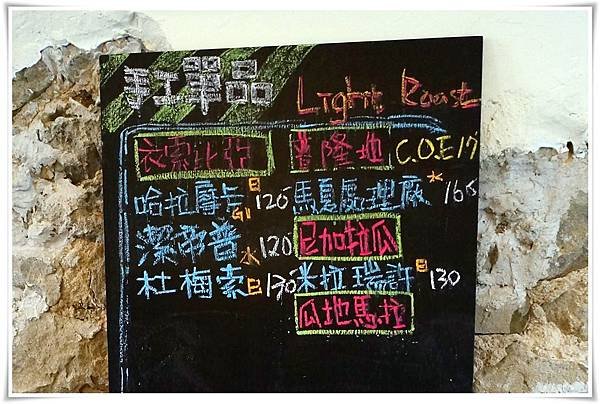 手工單品 Light Roast
衣索比亞
哈拉摩卡 日 G1 120
潔帝普 水 120
杜梅索 日 130
普隆地 C.O.E 17
馬夏處理廠 水 165
尼加拉瓜
米拉瑞許 日 130
瓜地馬拉